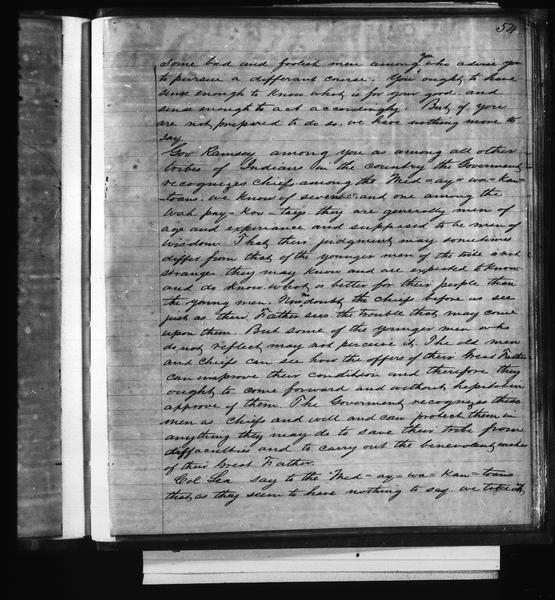 54
some bad and foolish men among you who advise you
to pursue a different course. You ought to have
sense enough to know what is for your good and
sense enough to act accordingly. But if you
are not prepared to do so we have nothing more to
say.
Gov Ramsey among you as among all other
tribes of Indians in the country the Goverment
recognizes chiefs among the Med-ay-wa-kan-
toans. we know of seven and one among the
Wah pay-koo-tays they are generally men of
age and experiance and supposed to be men of
wisdom. That their judgment may sometimes
differ from that of the younger men of the tribe is not
strange they may know and are expected to know
and do know what is better for their people than
the young men. Now no doubt the chiefs before us see
just as their Father sees the trouble that may come
upon them. But some of the younger men who
do not reflect may not perceive it. The old men
and chiefs can see how the offers of their Great Father
can improve their condition and therefore they
ought to come forward and without
approve of them. The Goverment recognizes these
men as chiefs and will and can protect them in
anything they may do to save their tribe from
diffaculties and to carry out the benevolent wishes
of their Great Father.
Col Lea say to the Med-ay-wa-kan-toans
that as they seem to have nothing to say we take it,